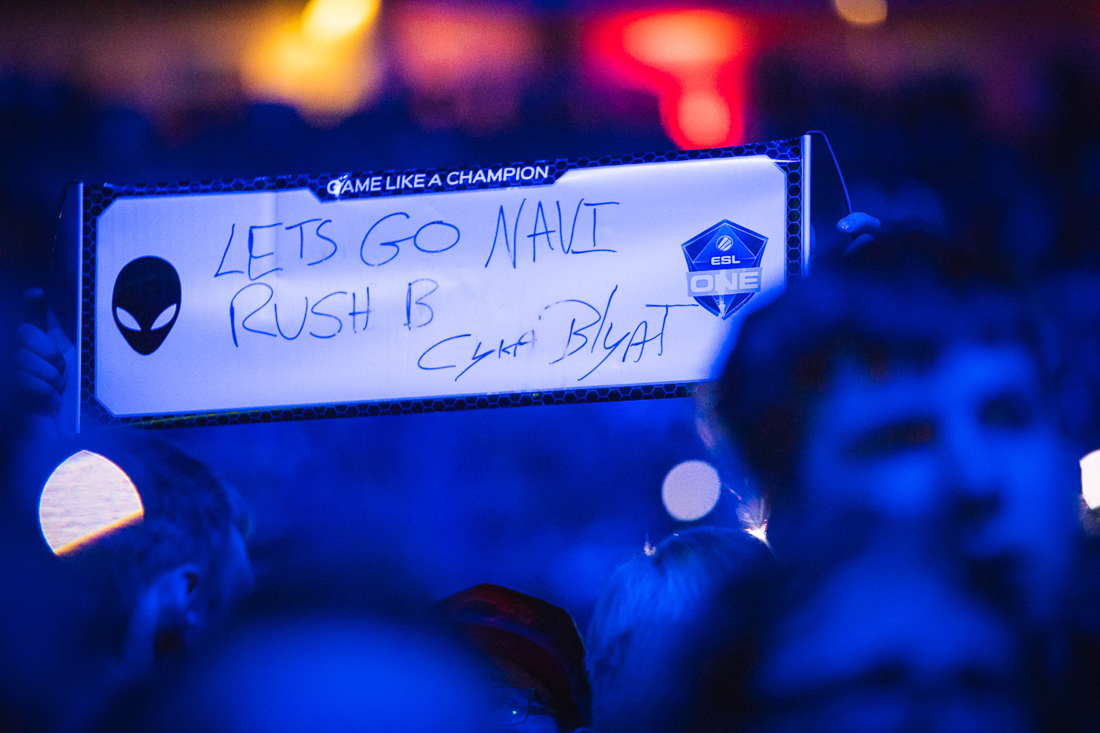 GAME LIKE A CHAMPION
LETS GO NAVI
RUSH B
CYKA BlyAT
ESL
ONE